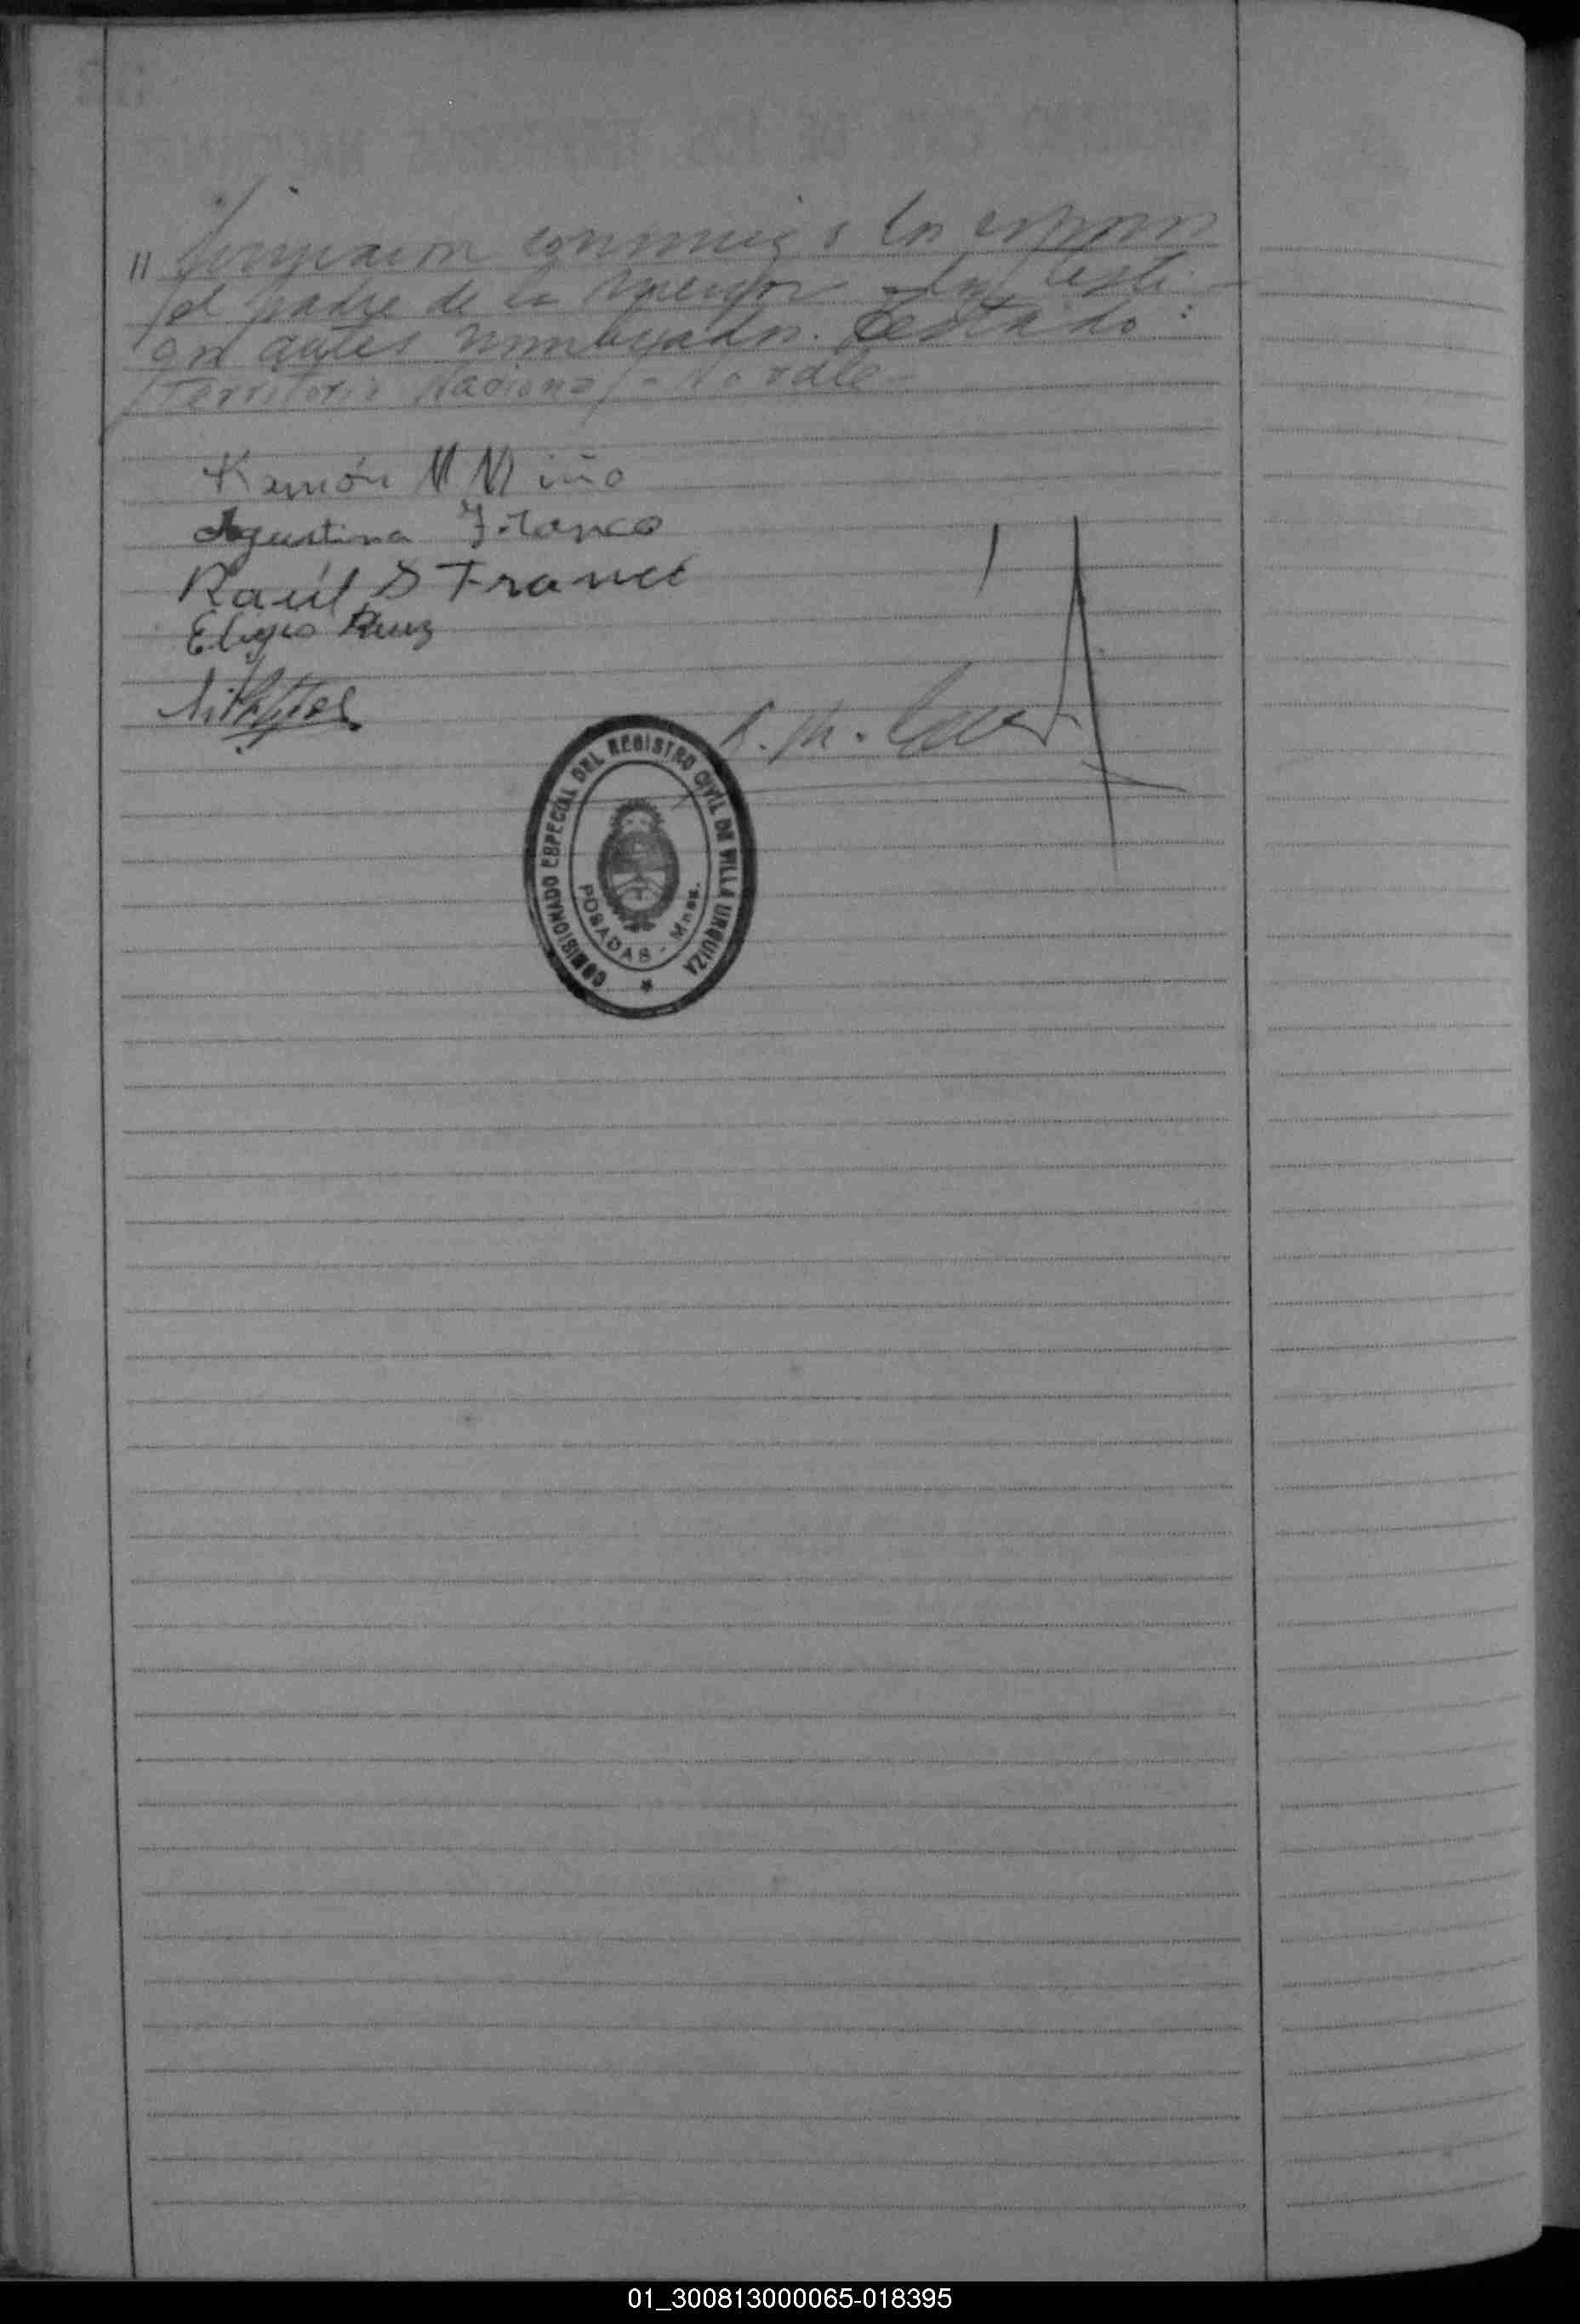 " firmaron conmigo los esposos
el padre de la menor y los testi-
gos antes nombrados. Testado:
Territorio Nacional - No vale
Ramón M Miño
Agustina Franco
Raúl S Franco
Eligio Ruiz
COMISIONADO ESPECIAL DEL REGISTRO CIVIL DE VILLA URQUIZA
POSADAS - Mnes.
01_300813000065-018395